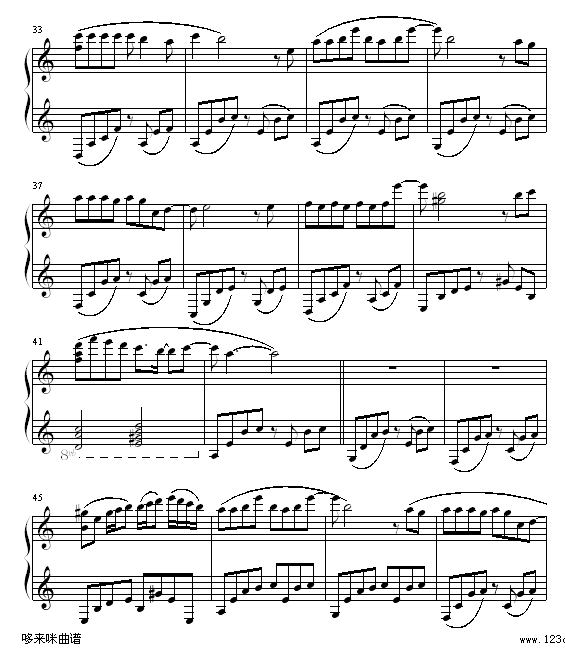 33
37
41
8va
45
哆来咪曲谱
www.123c